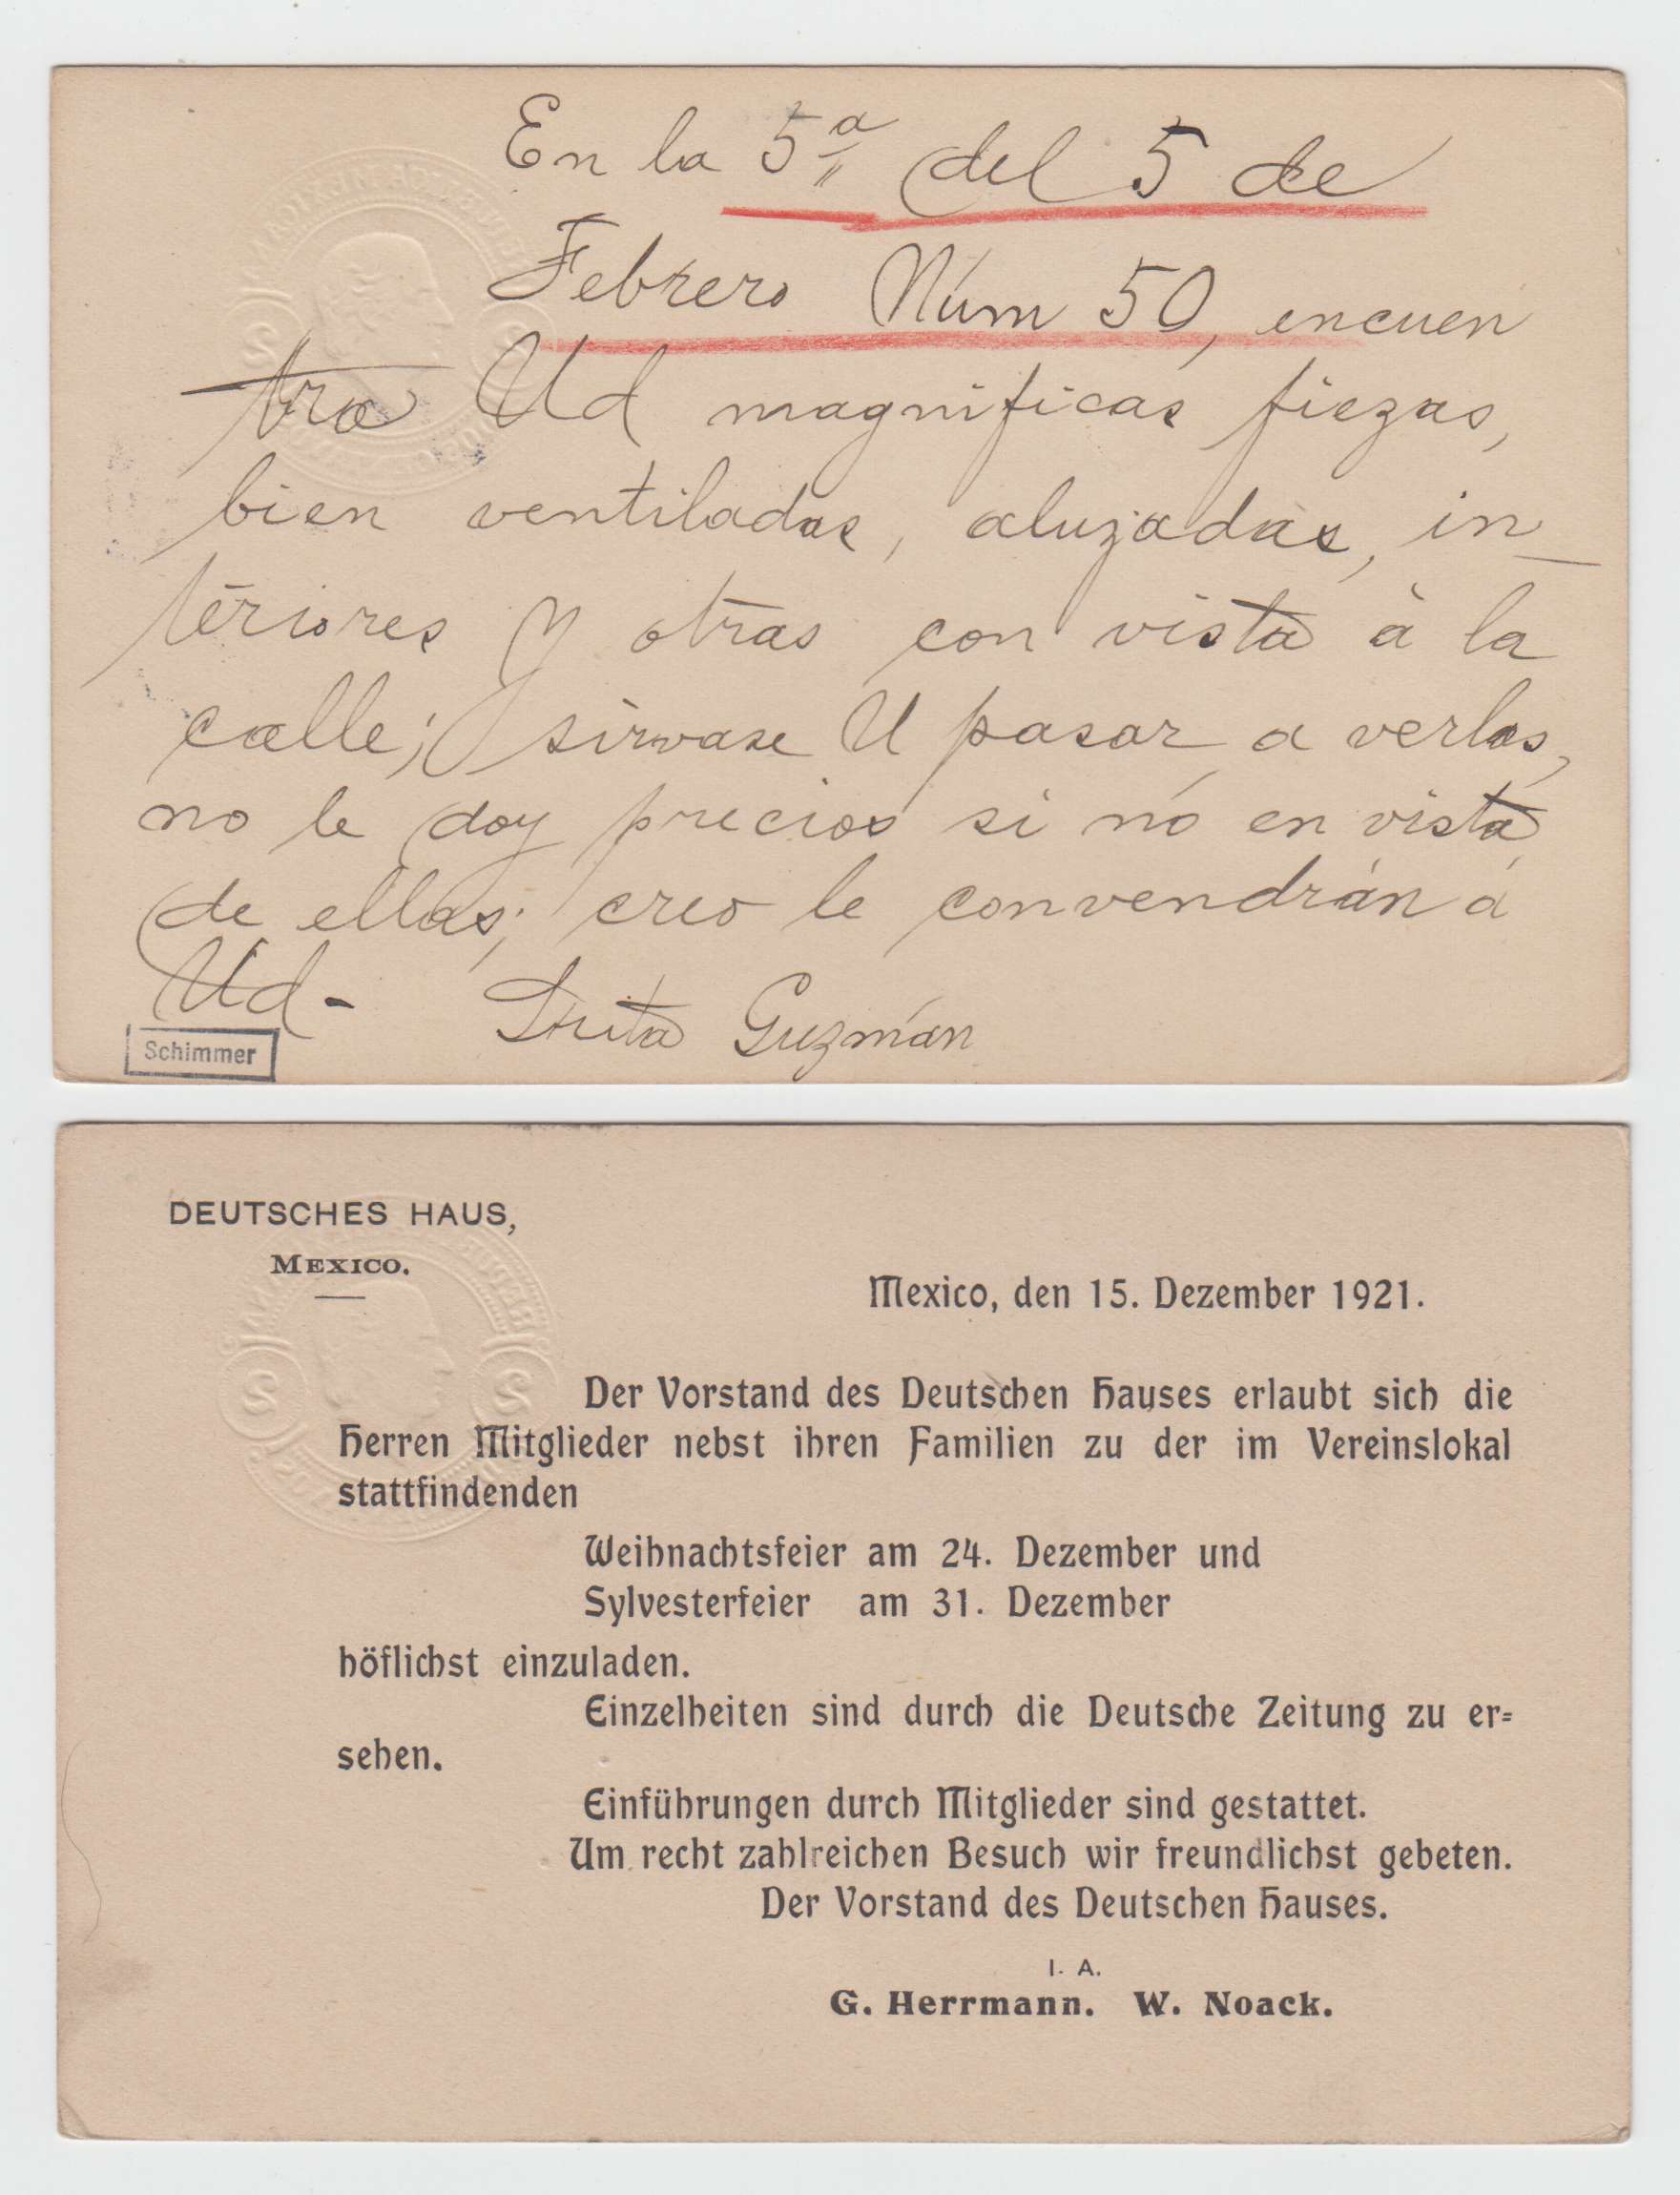 En la 5ª del 5 de
Febrero Núm 50, encuen
tra Ud magnificas piezas,
bien ventiladas, aluzadas, in_
teriores y otras con vista à la
calle; sirvase U pasar a verlas,
no le doy precios si nó en vista
de ellas; creo le convendrán á
Ud-
Guzmán
Schimmer
DEUTSCHES HAUS,
MEXICO.
Mexico, den 15. Dezember 1921.
Der Vorstand des Deutschen Hauses erlaubt sich die
Herren Mitglieder nebst ihren Familien zu der im Vereinslokal
stattfindenden
Weihnachtsfeier am 24. Dezember und
Sylvesterfeier am 31. Dezember
höflichst einzuladen.
Einzelheiten sind durch die Deutsche Zeitung zu er=
sehen.
Einführungen durch Mitglieder sind gestattet.
Um recht zahlreichen Besuch wir freundlichst gebeten.
Der Vorstand des Deutschen Hauses.
I. A.
G. Herrmann. W. Noack.